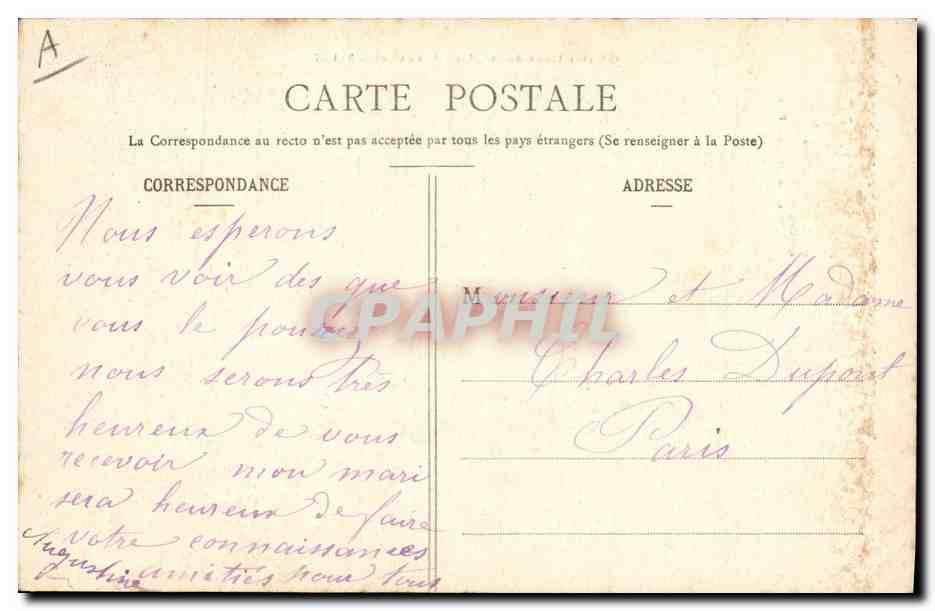 A
CARTE POSTALE
La Correspondance au recto n'est pas acceptée par tous les pays étrangers (Se renseigner à la Poste)
CORRESPONDANCE
Nous esperons
vous voir des que
vous le pouvez
nous serons très
heureux de vous
recevoir mon mari
sera heureux de faire
votre connaissances
amitiés pour tous
Augustine
ADRESSE
Monsieur et Madame
Charles Dupont
Paris
CPAPHIL